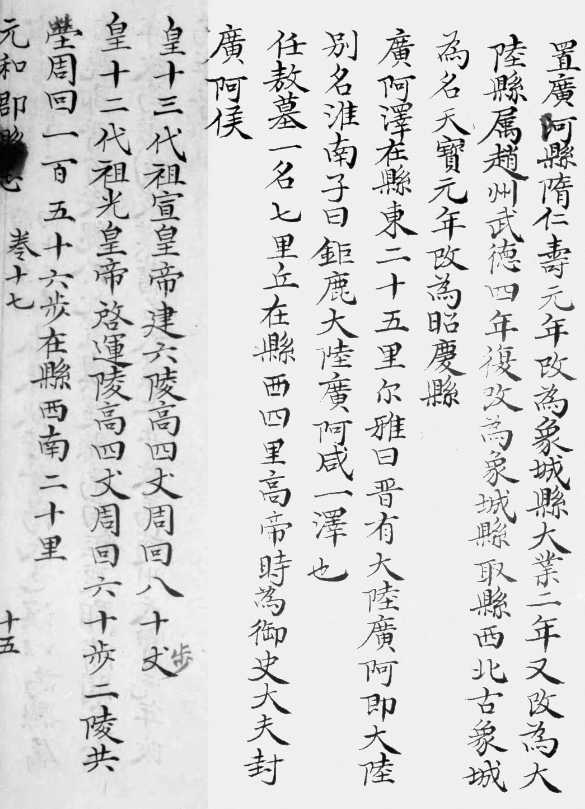 置廣阿縣隋仁壽元年改為象城縣大業二年又改為大
陸縣属趙州武德四年復改為象城縣取縣西北古象城
為名天寶元年改為昭慶縣
廣阿澤在縣東二十五里尔雅曰晋有大陸廣阿即大陸
别名淮南子曰鉅鹿大陸廣阿咸一澤也
任敖墓一名七里丘在縣西四里高帝時為御史大夫封
廣阿侯
皇十三代祖宣皇帝建六陵高四丈周回八十丈步
皇十二代祖光皇帝啓運陵高四丈周回六十步二陵共
塋周回一百五十六步在縣西南二十里
元和郡縣志 卷十七 十五